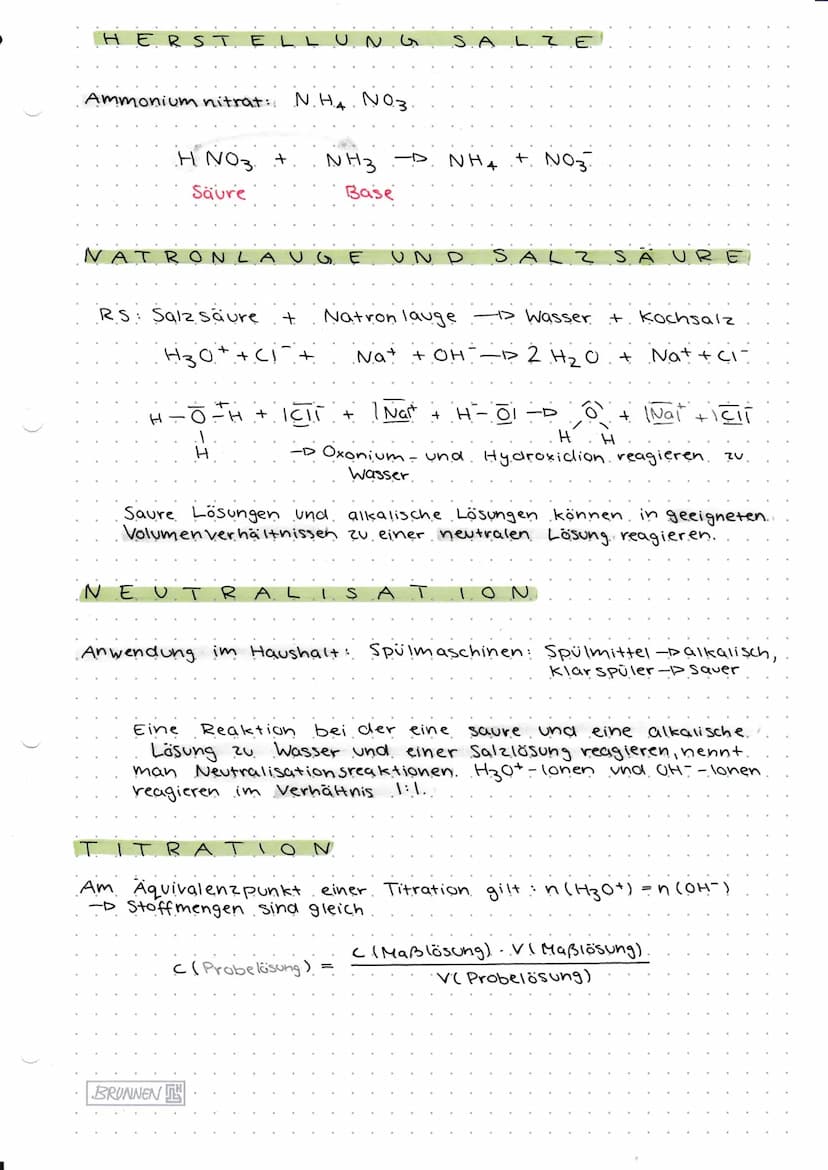 HERSTELLUNG SALZE
Ammoniumnitrat: NH₄ NO₃
HNO₃ + NH₃ → NH₄ + NO₃⁻
Säure Base
NATRONLAUGE UND SALZSÄURE
RS: Salzsäure + Natronlauge → Wasser + Kochsalz
H₃O⁺ + Cl⁻ + Na⁺ + OH⁻ → 2 H₂O + Na⁺ + Cl⁻
H – O – H + |Cl|⁻ + |Na⁺ + H – O| → O + |Na|⁺ + |Cl|⁻
H H
H → Oxonium- und Hydroxidion reagieren zu
Wasser
Saure Lösungen und alkalische Lösungen können in geeigneten
Volumenverhältnissen zu einer neutralen Lösung reagieren.
NEUTRALISATION
Anwendung im Haushalt: Spülmaschinen: Spülmittel → alkalisch,
Klarspüler → sauer
Eine Reaktion bei der eine saure und eine alkalische
Lösung zu Wasser und einer Salzlösung reagieren, nennt
man Neutralisationsreaktionen. H₃O⁺-Ionen und OH⁻-Ionen
reagieren im Verhältnis 1:1.
TITRATION
Am Äquivalenzpunkt einer Titration gilt: n(H₃O⁺) = n(OH⁻)
→ Stoffmengen sind gleich
c(Maßlösung) · V(Maßlösung)
c(Probelösung) =
V(Probelösung)
BRUNNEN